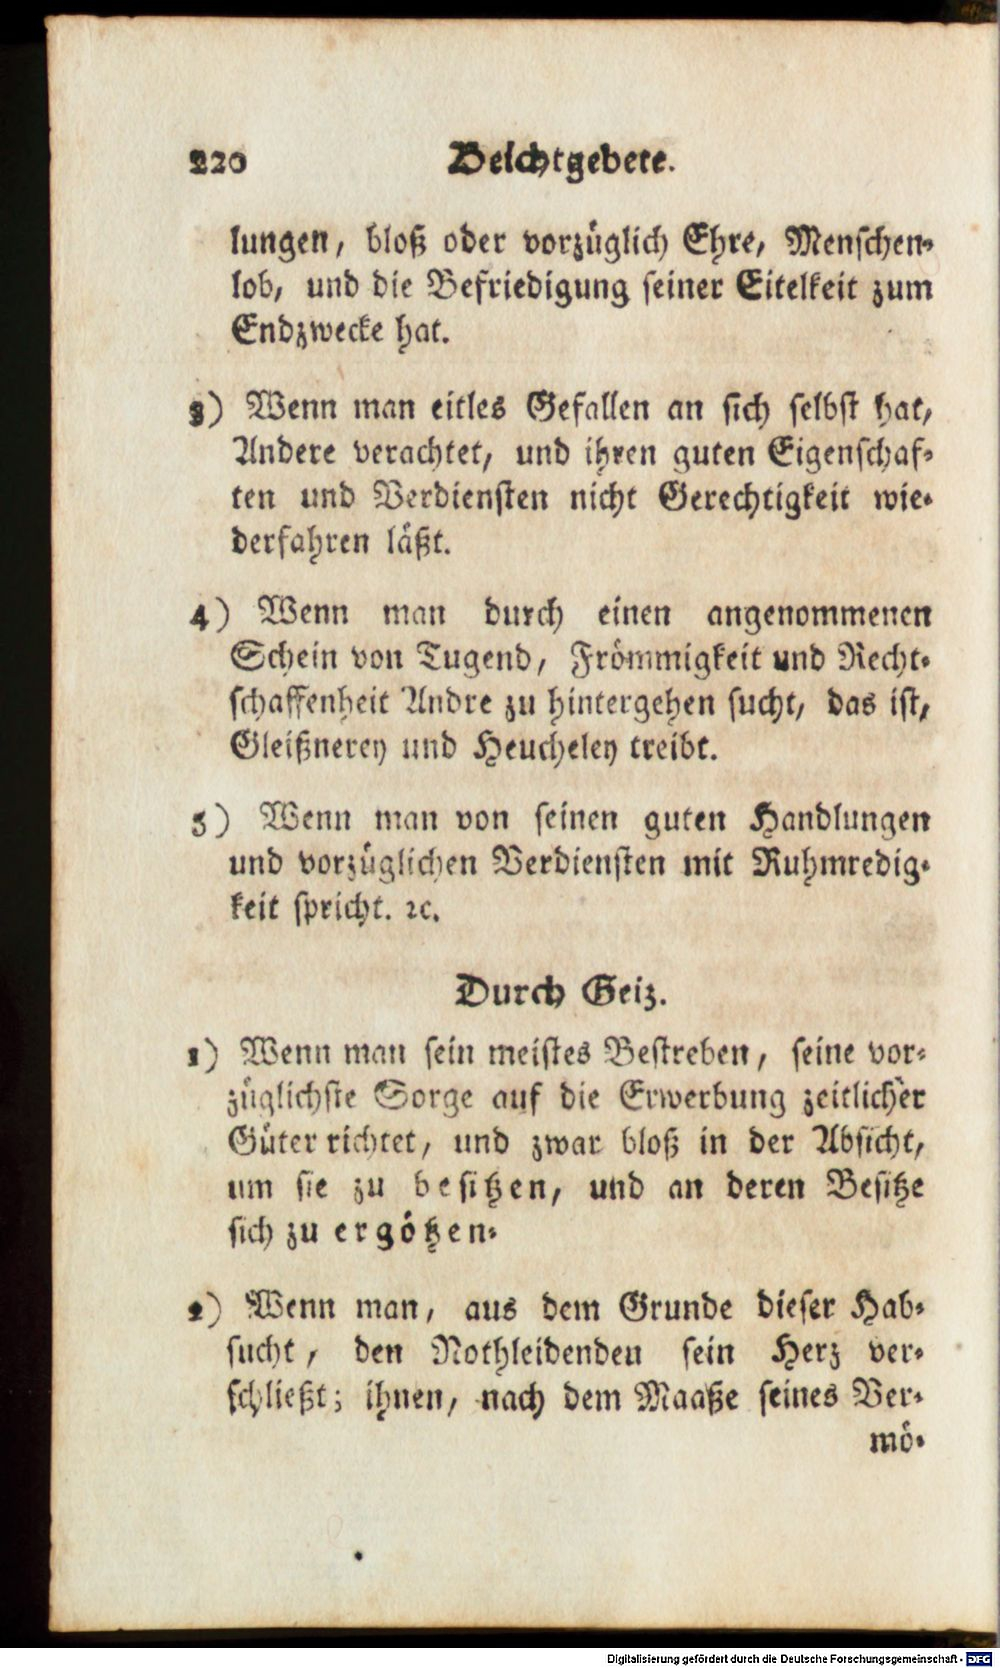 220 Beichtgebete.
lungen, bloß oder vorzüglich Ehre, Menschen-
lob, und die Befriedigung seiner Eitelkeit zum
Endzwecke hat.
3) Wenn man eitles Gefallen an sich selbst hat,
Andere verachtet, und ihren guten Eigenschaf-
ten und Verdiensten nicht Gerechtigkeit wie-
derfahren läßt.
4) Wenn man durch einen angenommenen
Schein von Tugend, Frömmigkeit und Recht-
schaffenheit Andre zu hintergehen sucht, das ist,
Gleißnerey und Heucheley treibt.
5) Wenn man von seinen guten Handlungen
und vorzüglichen Verdiensten mit Ruhmredig-
keit spricht. ꝛc.
Durch Geiz.
1) Wenn man sein meistes Bestreben, seine vor-
züglichste Sorge auf die Erwerbung zeitlicher
Güter richtet, und zwar bloß in der Absicht,
um sie zu besitzen, und an deren Besitze
sich zu ergötzen.
2) Wenn man, aus dem Grunde dieser Hab-
sucht, den Nothleidenden sein Herz ver-
schließt; ihnen, nach dem Maaße seines Ver-
mö-
Digitalisierung gefördert durch die Deutsche Forschungsgemeinschaft - DFG